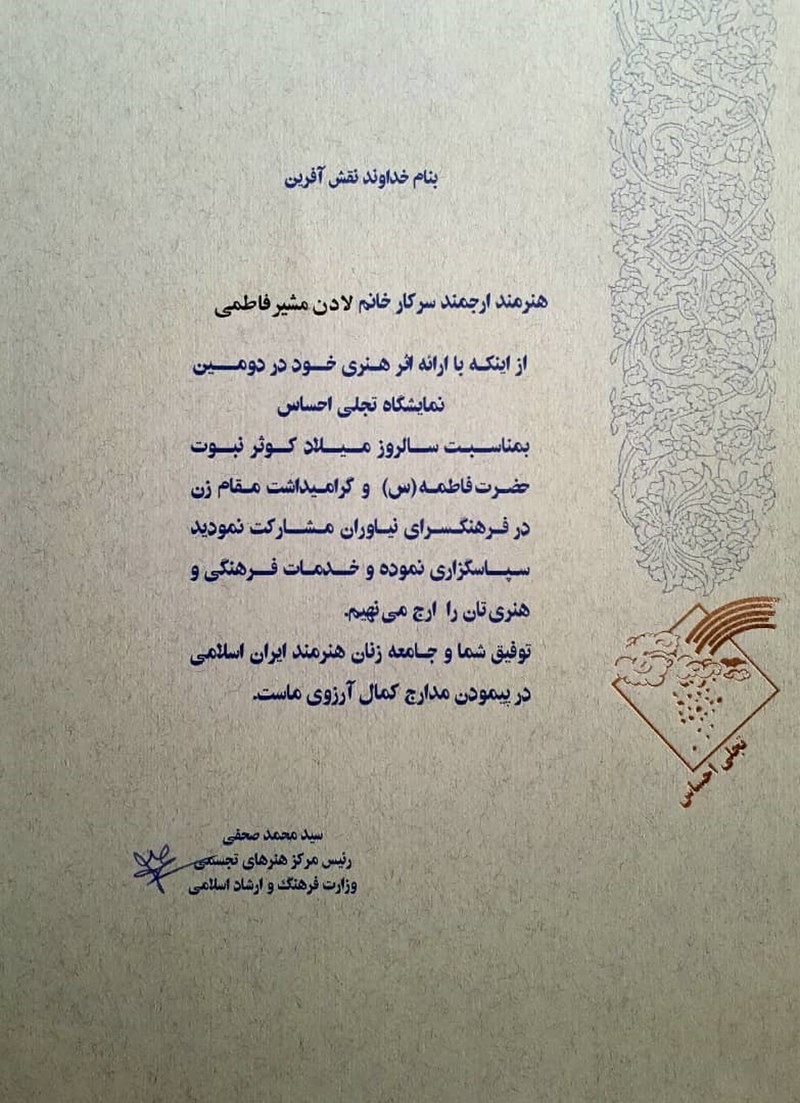 بنام خداوند نقش آفرین
هنرمند ارجمند سرکار خانم لادن مشیر فاطمی
از اینکه با ارائه اثر هنری خود در دومین
نمایشگاه تجلی احساس
بمناسبت سالروز میلاد کوثر نبوت
حضرت فاطمه (س) و گرامیداشت مقام زن
در فرهنگسرای نیاوران مشارکت نمودید
سپاسگزاری نموده و خدمات فرهنگی و
هنری تان را ارج می نهیم.
توفیق شما و جامعه زنان هنرمند ایران اسلامی
در پیمودن مدارج کمال آرزوی ماست.
تجلی احساس
سید محمد صحفی
رئیس مرکز هنرهای تجسمی
وزارت فرهنگ و ارشاد اسلامی